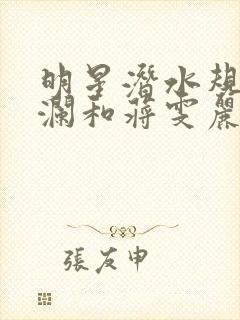 明星潛水規
瀾和蔣雯麗
張友申